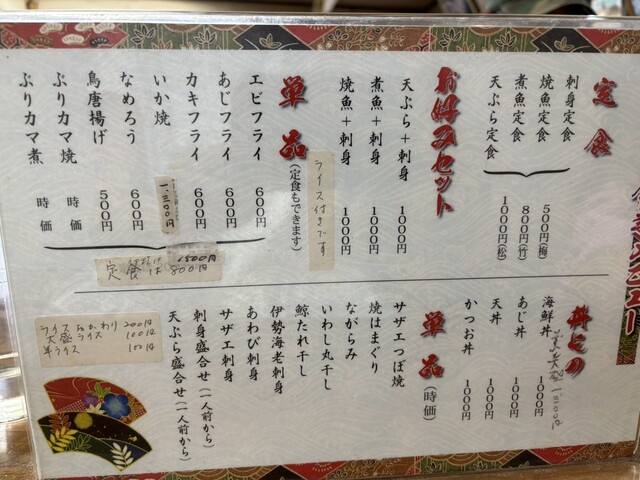 定食
刺身定食
焼魚定食
煮魚定食
天ぷら定食
500円(梅)
800円(竹)
1000円(松)
お好みセット
天ぷら+刺身 1000円
煮魚+刺身 1000円
焼魚+刺身 1000円
ライス付きです
単品(定食もできます)
エビフライ 600円
あじフライ 600円
カキフライ 600円
いか焼 1,300円
なめろう 600円
鳥唐揚げ 500円
ぶりカマ焼 時価
ぶりカマ煮 時価
1500円
定食は 800円
丼もの
海鮮丼 1000円
1300円
あじ丼 1000円
天丼 1000円
かつお丼 1000円
単品(時価)
サザエつぼ焼
焼はまぐり
ながらみ
いわし丸干し
鯨たれ干し
伊勢海老刺身
あわび刺身
サザエ刺身
刺身盛合せ(一人前から)
天ぷら盛合せ(一人前から)
ライスおかわり 200円
大盛ライス 100円
半ライス 100円